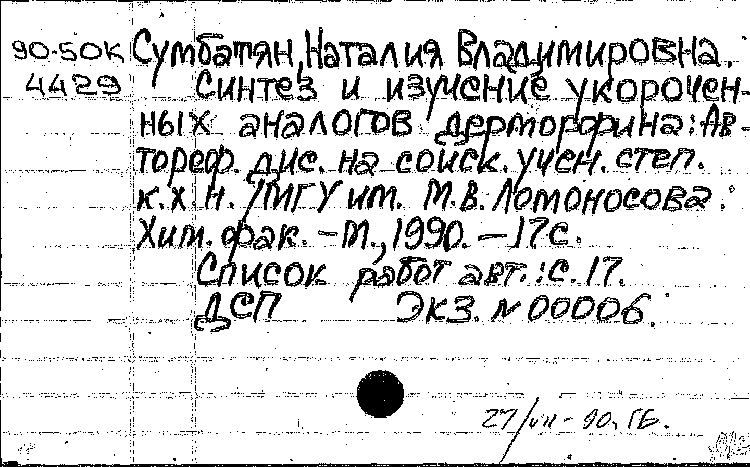 90-50К Сумбатян, Наталия Владимировна.
4429 Синтез и изучение укорочен-
ных аналогов дерморфина: Ав-
тореф. дис. на соиск. учен. степ.
к.х.н. /МГУ им. М.В. Ломоносова.
Хим. фак. - М., 1990. - 17с.
Список работ авт.: с. 17.
ДСП Экз. № 00006.
27/VII - 90. ГБ.